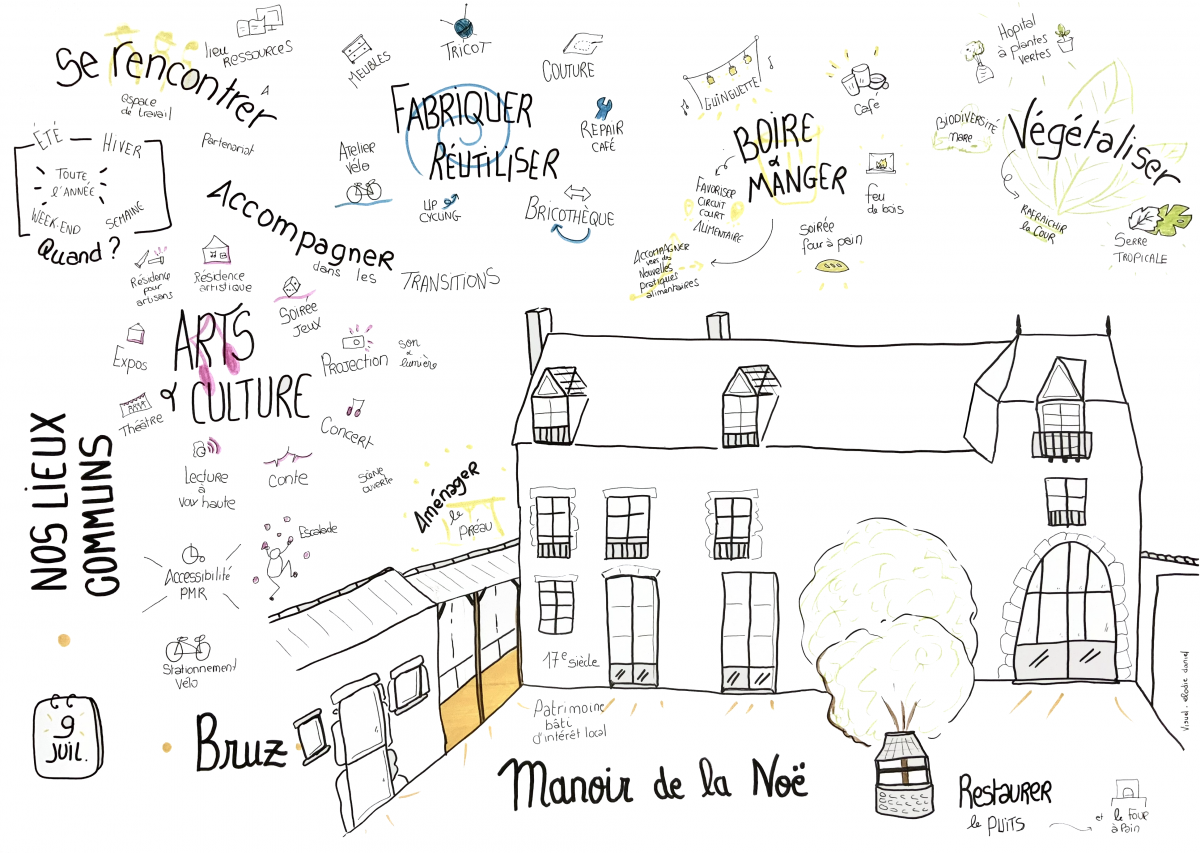 Se rencontrer
lieu
RESSOURCES
espace
de travail
Partenariat
à
ÉTÉ
HIVER
TOUTE
l'ANNÉE
WEEK-END
SEMAINE
Quand ?
MEUBLES
TRICOT
COUTURE
FABRIQUER
RÉUTILISER
REPAIR
CAFÉ
Atelier
vélo
UP
CYCLING
BRICOTHÈQUE
GUINGUETTE
café
BOIRE
&
MANGER
FAVORISER
CIRCUIT
COURT
ALIMENTAIRE
feu
de bois
Soirée
four à pain
ACCOMPAGNER
vers des
Nouvelles
pratiques
alimentaires
Hopital
à plantes
vertes
BIODIVERSITE
mare
Végétaliser
RAFRAICHIR
la COUR
SERRE
TROPICALE
Accompagner
dans les
TRANSITIONS
Résidence
pour
artisans
Résidence
artistique
SOIRÉE
JEUX
ARTS
& CULTURE
Expos
Projection
son
&
lumière
Théâtre
Concert
Lecture
à
voix haute
conte
scène
ouverte
Escalade
Accessibilité
PMR
Stationnement
Vélo
Aménager
le
PRÉAU
NOS LIEUX
COMMUNS
9
JUIL.
Bruz
17e siècle
Patrimoine
bâti
d'intérêt local
Manoir de la Noë
RESTAURER
le PUITS
et le FOUR
à Pain
Visuel : élodie daniel